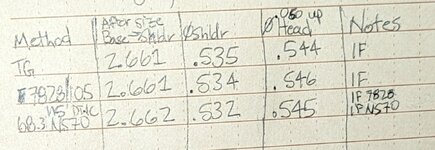 Method After size Base → Shldr Øshldr Ø .050 up head Notes
TG 2.661 .535 .544 IF
7828 105 2.661 .534 .546 IF
68.3 N570 2.662 .532 .545 IF 7828 LP N570